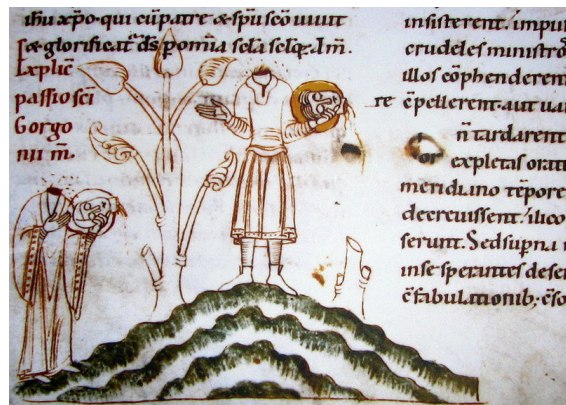 ihu xp̄o·qui cū patre & sp̄u sc̄o uiuit
& glorificat d̄s p om̄ia sc̄la sc̄loȝ. Am̄.
Explic̄
passio sc̄i
Gorgo
nii m̄.
insisterent. impu
crudeles ministro
illos c̄phenderen
re c̄pellerent. aut ua
n̄ tardarent
expletas orati
meridiano tēpore
decreuissent / ilico
serunt. Sed supna
in se sperantes deser
c̄fabulationib;